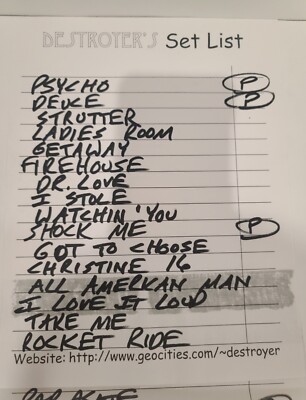 DESTROYER'S Set List
PSYCHO P
DEUCE P
STRUTTER
LADIES ROOM
GETAWAY
FIREHOUSE
DR. LOVE
I STOLE
WATCHIN' YOU
SHOCK ME P
GOT TO CHOOSE
CHRISTINE 16
ALL AMERICAN MAN
I LOVE IT LOUD
TAKE ME
ROCKET RIDE
Website: http://www.geocities.com/~destroyer